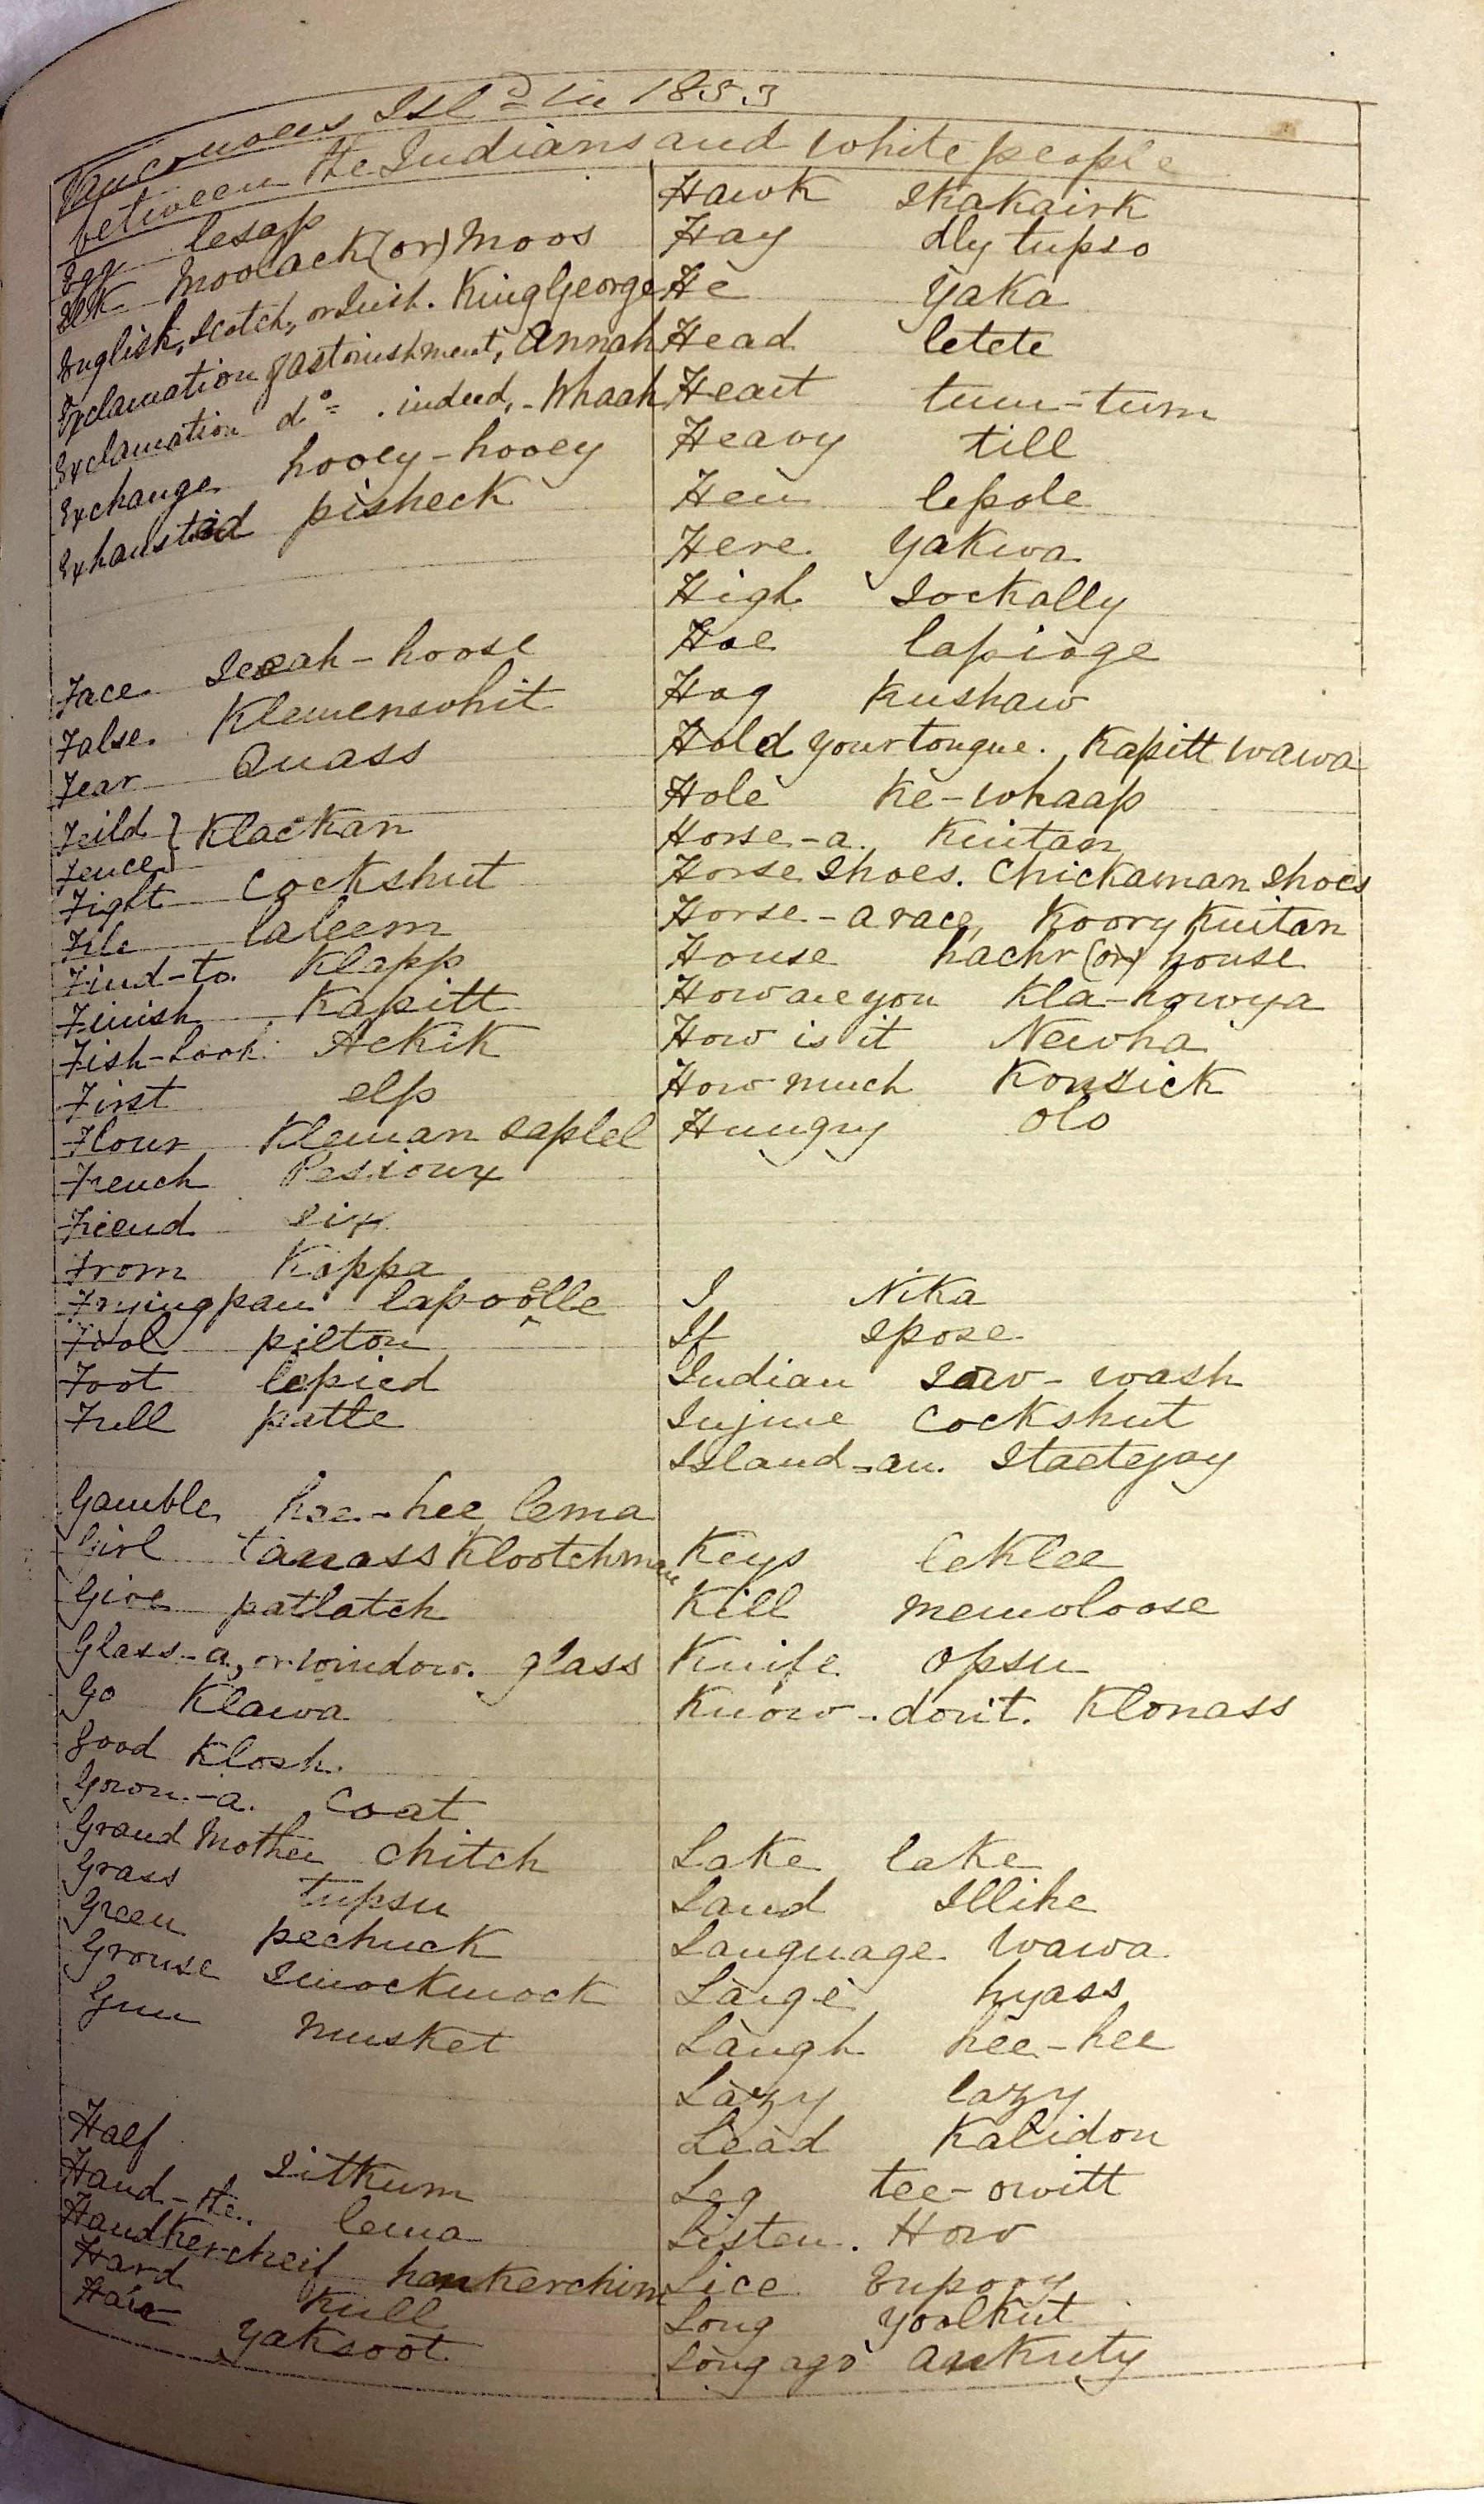 Vancouvers Isl^d in 1853
between the Indians and white people
Egg lesap
Elk Moolack (or) Moos
English, Scotch, or Irish. King George
Exclamation of astonishment, Annah
Exclamation d^o . indeed, - Whaah
Exchange hooey-hooey
Exhausted pisheck
Face Seeah-hoose
False Klemenwhit
Fear Quass
Feild } Klackan
Fence }
Fight Cockshut
File laleem
Find-to. Klapp
Finish Kapitt
Fish-hook Ackik
First elp
Flour Kleman saplel
French Pesioux
Friend six
From Koppa
Frying pan lapoëlle
Fool pilton
Foot lepied
Full patle
Gamble hee-hee lema
Girl tanass Klootchman
Give patlatch
Glass-a, or window. glass
Go Klawa
Good Klosh.
Gown-a. Coat
Grand Mother Chitch
Grass tupsu
Green pechuck
Grouse Smockmock
Gun Musket
Half Sitkum
Hand-the. lema
Handkercheif hankerchim
Hard Kull
Hair Yaksoot
Hawk Shakairk
Hay dly tupso
He Yaka
Head letete
Heart tum-tum
Heavy till
Hen lepole
Here. Yakwa
High Sockally
Hoe lapioge
Hog Kushaw
Hold your tongue. Kapitt wawa
Hole Ke-whaap
Horse-a. Kuitan
Horse Shoes. Chickaman Shoes
Horse-a race, Koory Kuitan
House hachr (or) house
How are you Kla-howya
How is it Newha
How much Konsick
Hungry olo
I Nika
If Spose
Indian Saw-wash
Injure Cockshut
Island-an. Stactejay
Keys leklee
Kill Memoloose
Knife opsu
Know-don't. Klonass
Lake lake
Land Illihe
Language Wawa
Large hyass
Laugh hee-hee
Lazy lazy
Lead Kalidon
Leg tee-owitt
Listen. How
Lice Enpooy
Long Yoolkut
Long ago ankuty